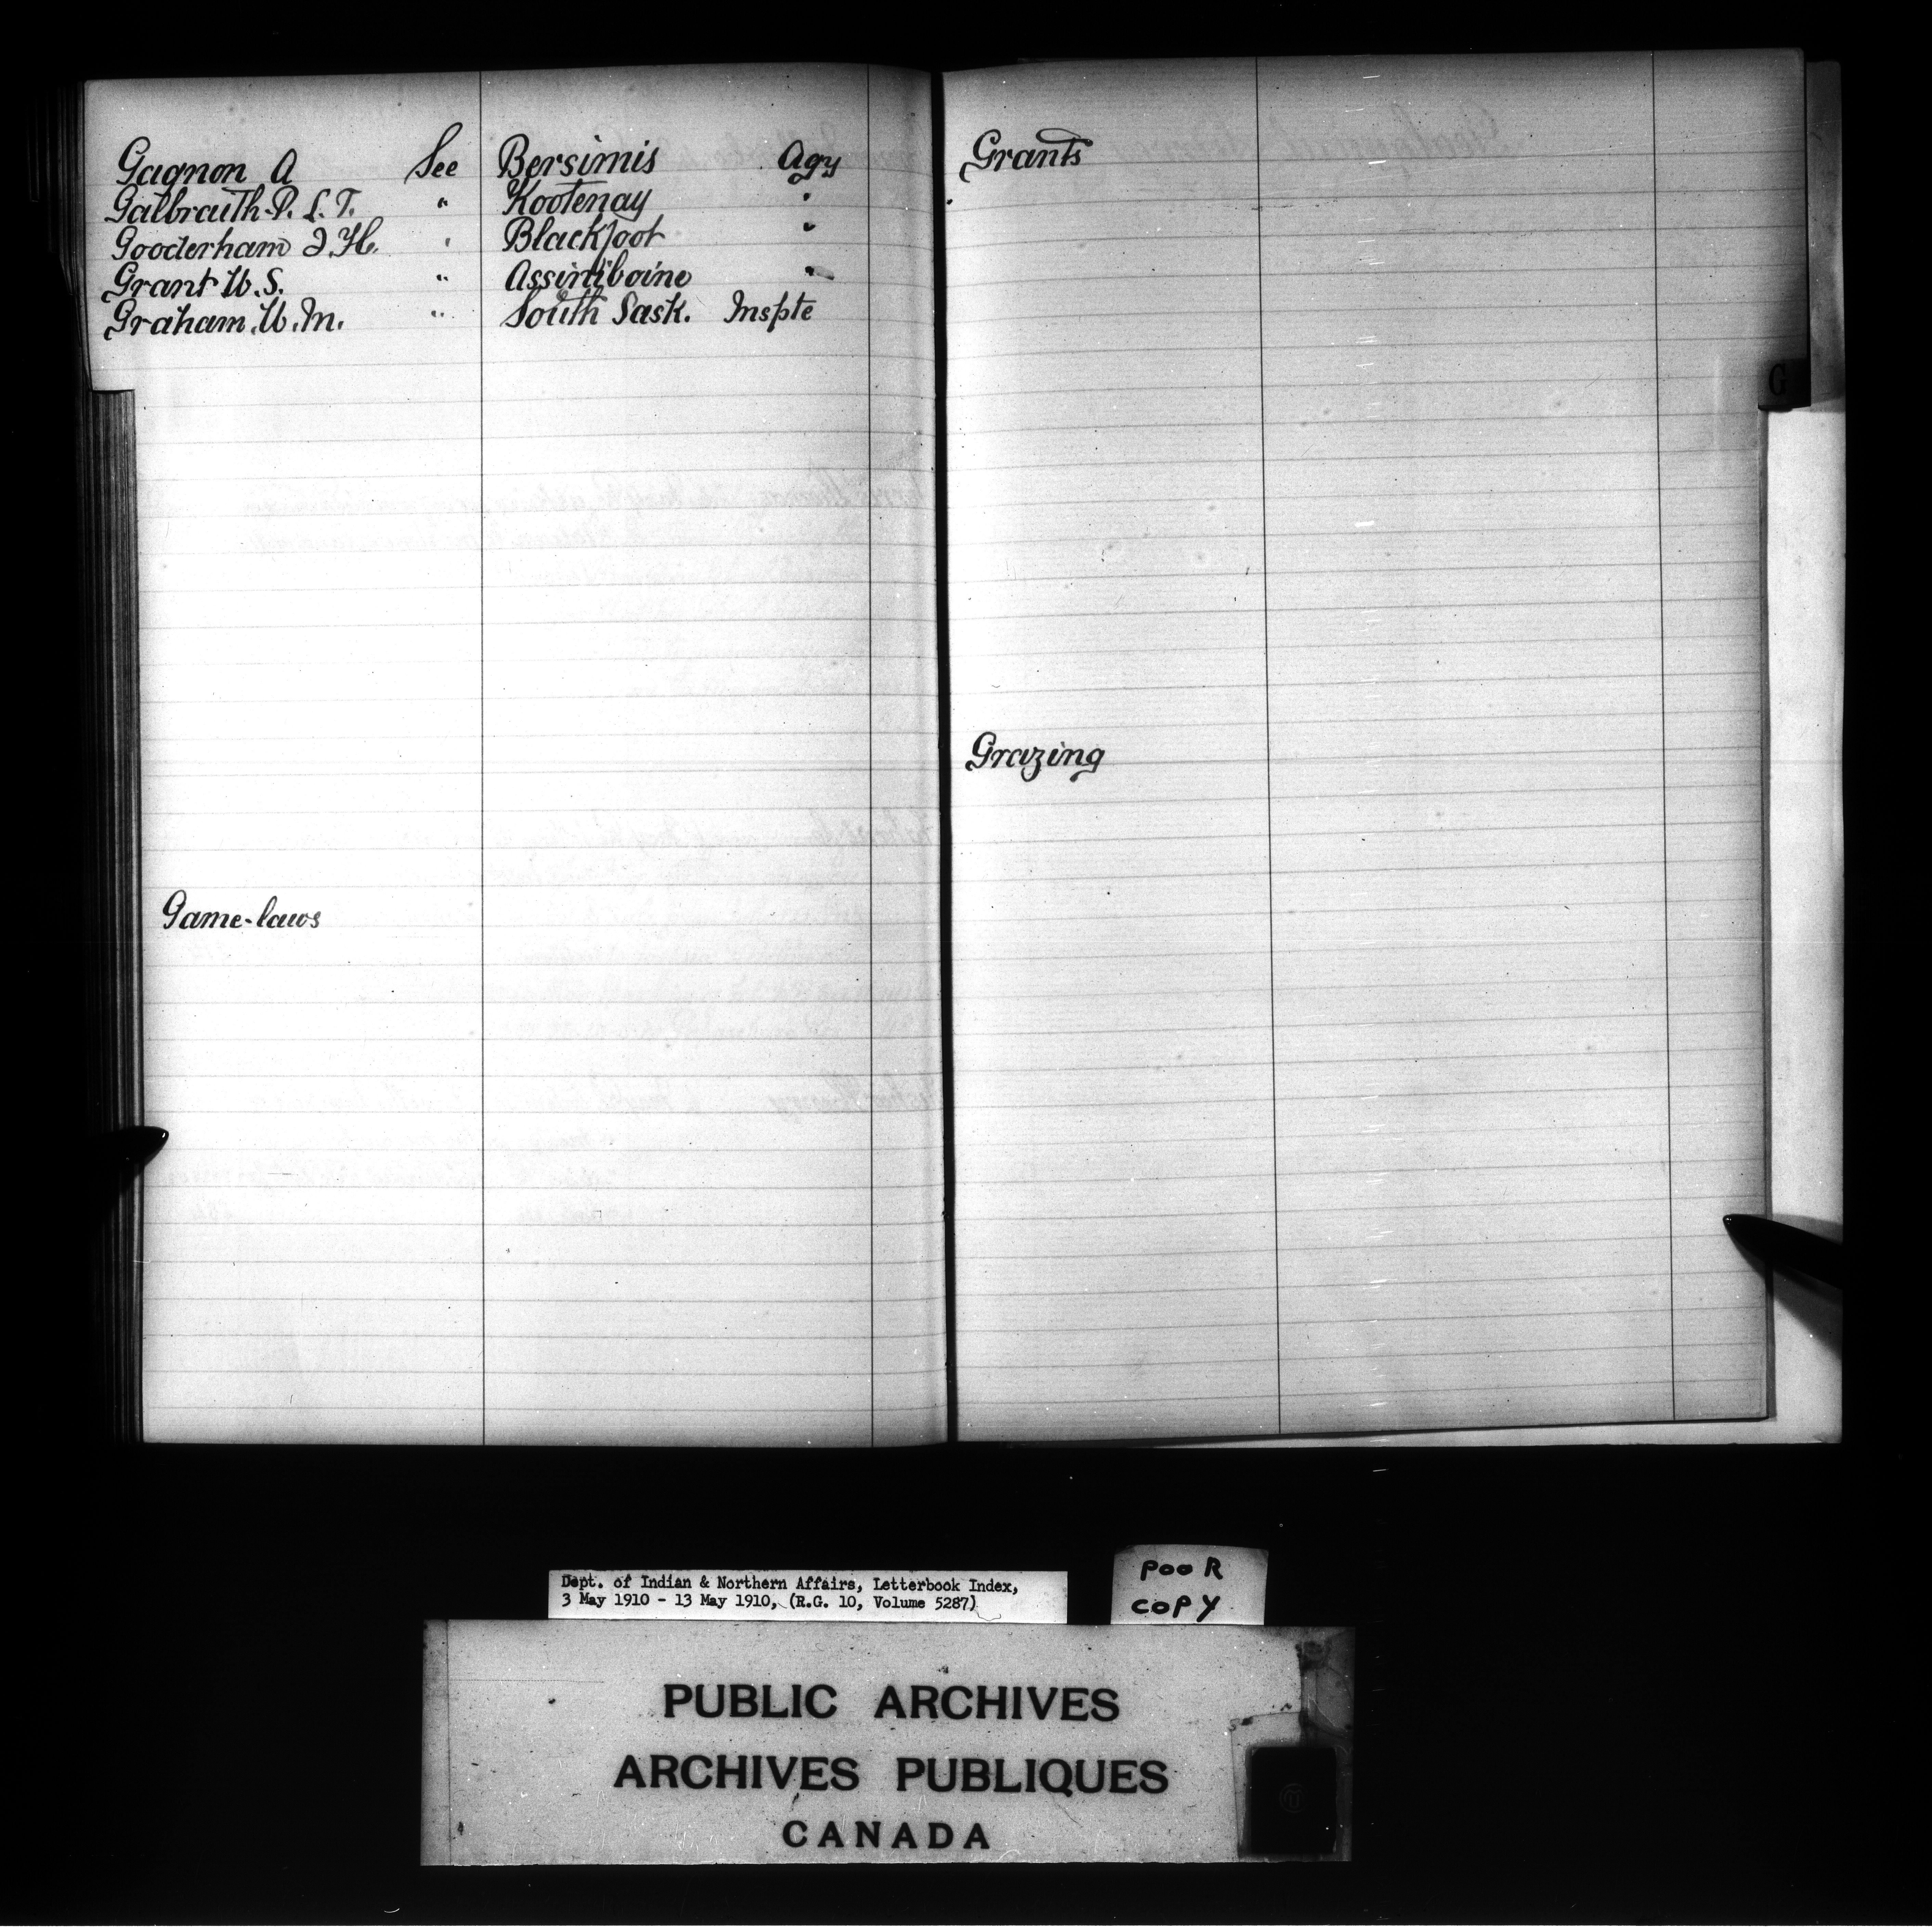 Gagnon A See Bersimis Agy
Galbraith P. L. T. " Kootenay "
Gooderham J. H. " Blackfoot "
Grant W. S. " Assiniboine "
Graham W. M. " South Sask. Inspte
Game-laws
Grants
Grazing
G
Dept. of Indian & Northern Affairs, Letterbook Index,
3 May 1910 - 13 May 1910, (R.G. 10, Volume 5287)
POOR
COPY
PUBLIC ARCHIVES
ARCHIVES PUBLIQUES
CANADA